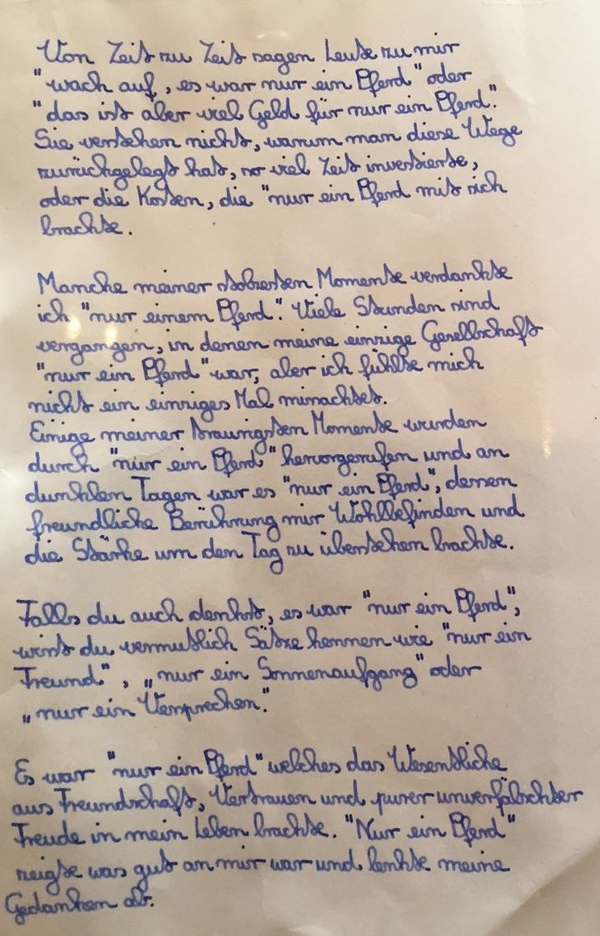 Von Zeit zu Zeit sagen Leute zu mir
"wach auf, es war nur ein Pferd" oder
"das ist aber viel Geld für nur ein Pferd".
Sie verstehen nicht, warum man diese Wege
zurückgelegt hat, so viel Zeit investierte,
oder die Kosten, die "nur ein Pferd mit sich
brachte.
Manche meiner stolzesten Momente verdankte
ich "nur einem Pferd". Viele Stunden sind
vergangen, in denen meine einzige Gesellschaft
"nur ein Pferd" war, aber ich fühlte mich
nicht ein einziges Mal missachtet.
Einige meiner traurigsten Momente wurden
durch "nur ein Pferd" hervorgerufen und an
dunklen Tagen war es "nur ein Pferd", dessen
freundliche Berührung mir Wohlbefinden und
die Stärke um den Tag zu überstehen brachte.
Falls du auch denkst, es war "nur ein Pferd",
wirst du vermutlich Sätze kennen wie "nur ein
Freund", „nur ein Sonnenaufgang" oder
„nur ein Versprechen."
Es war "nur ein Pferd" welches das Wesentliche
aus Freundschaft, Vertrauen und purer unverfälschter
Freude in mein Leben brachte. "Nur ein Pferd"
zeigte was gut an mir war und lenkte meine
Gedanken ab.